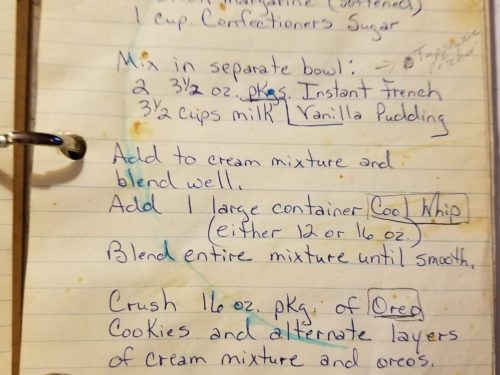 margarine (softened)
1 cup Confectioners Sugar
Mix in separate bowl:
2 3½ oz. pkgs. Instant French
3½ cups milk Vanilla Pudding
Add to cream mixture and
blend well.
Add 1 large container Cool Whip
(either 12 or 16 oz.)
Blend entire mixture until smooth.
Crush 16 oz. pkg. of Oreo
Cookies and alternate layers
of cream mixture and oreos.